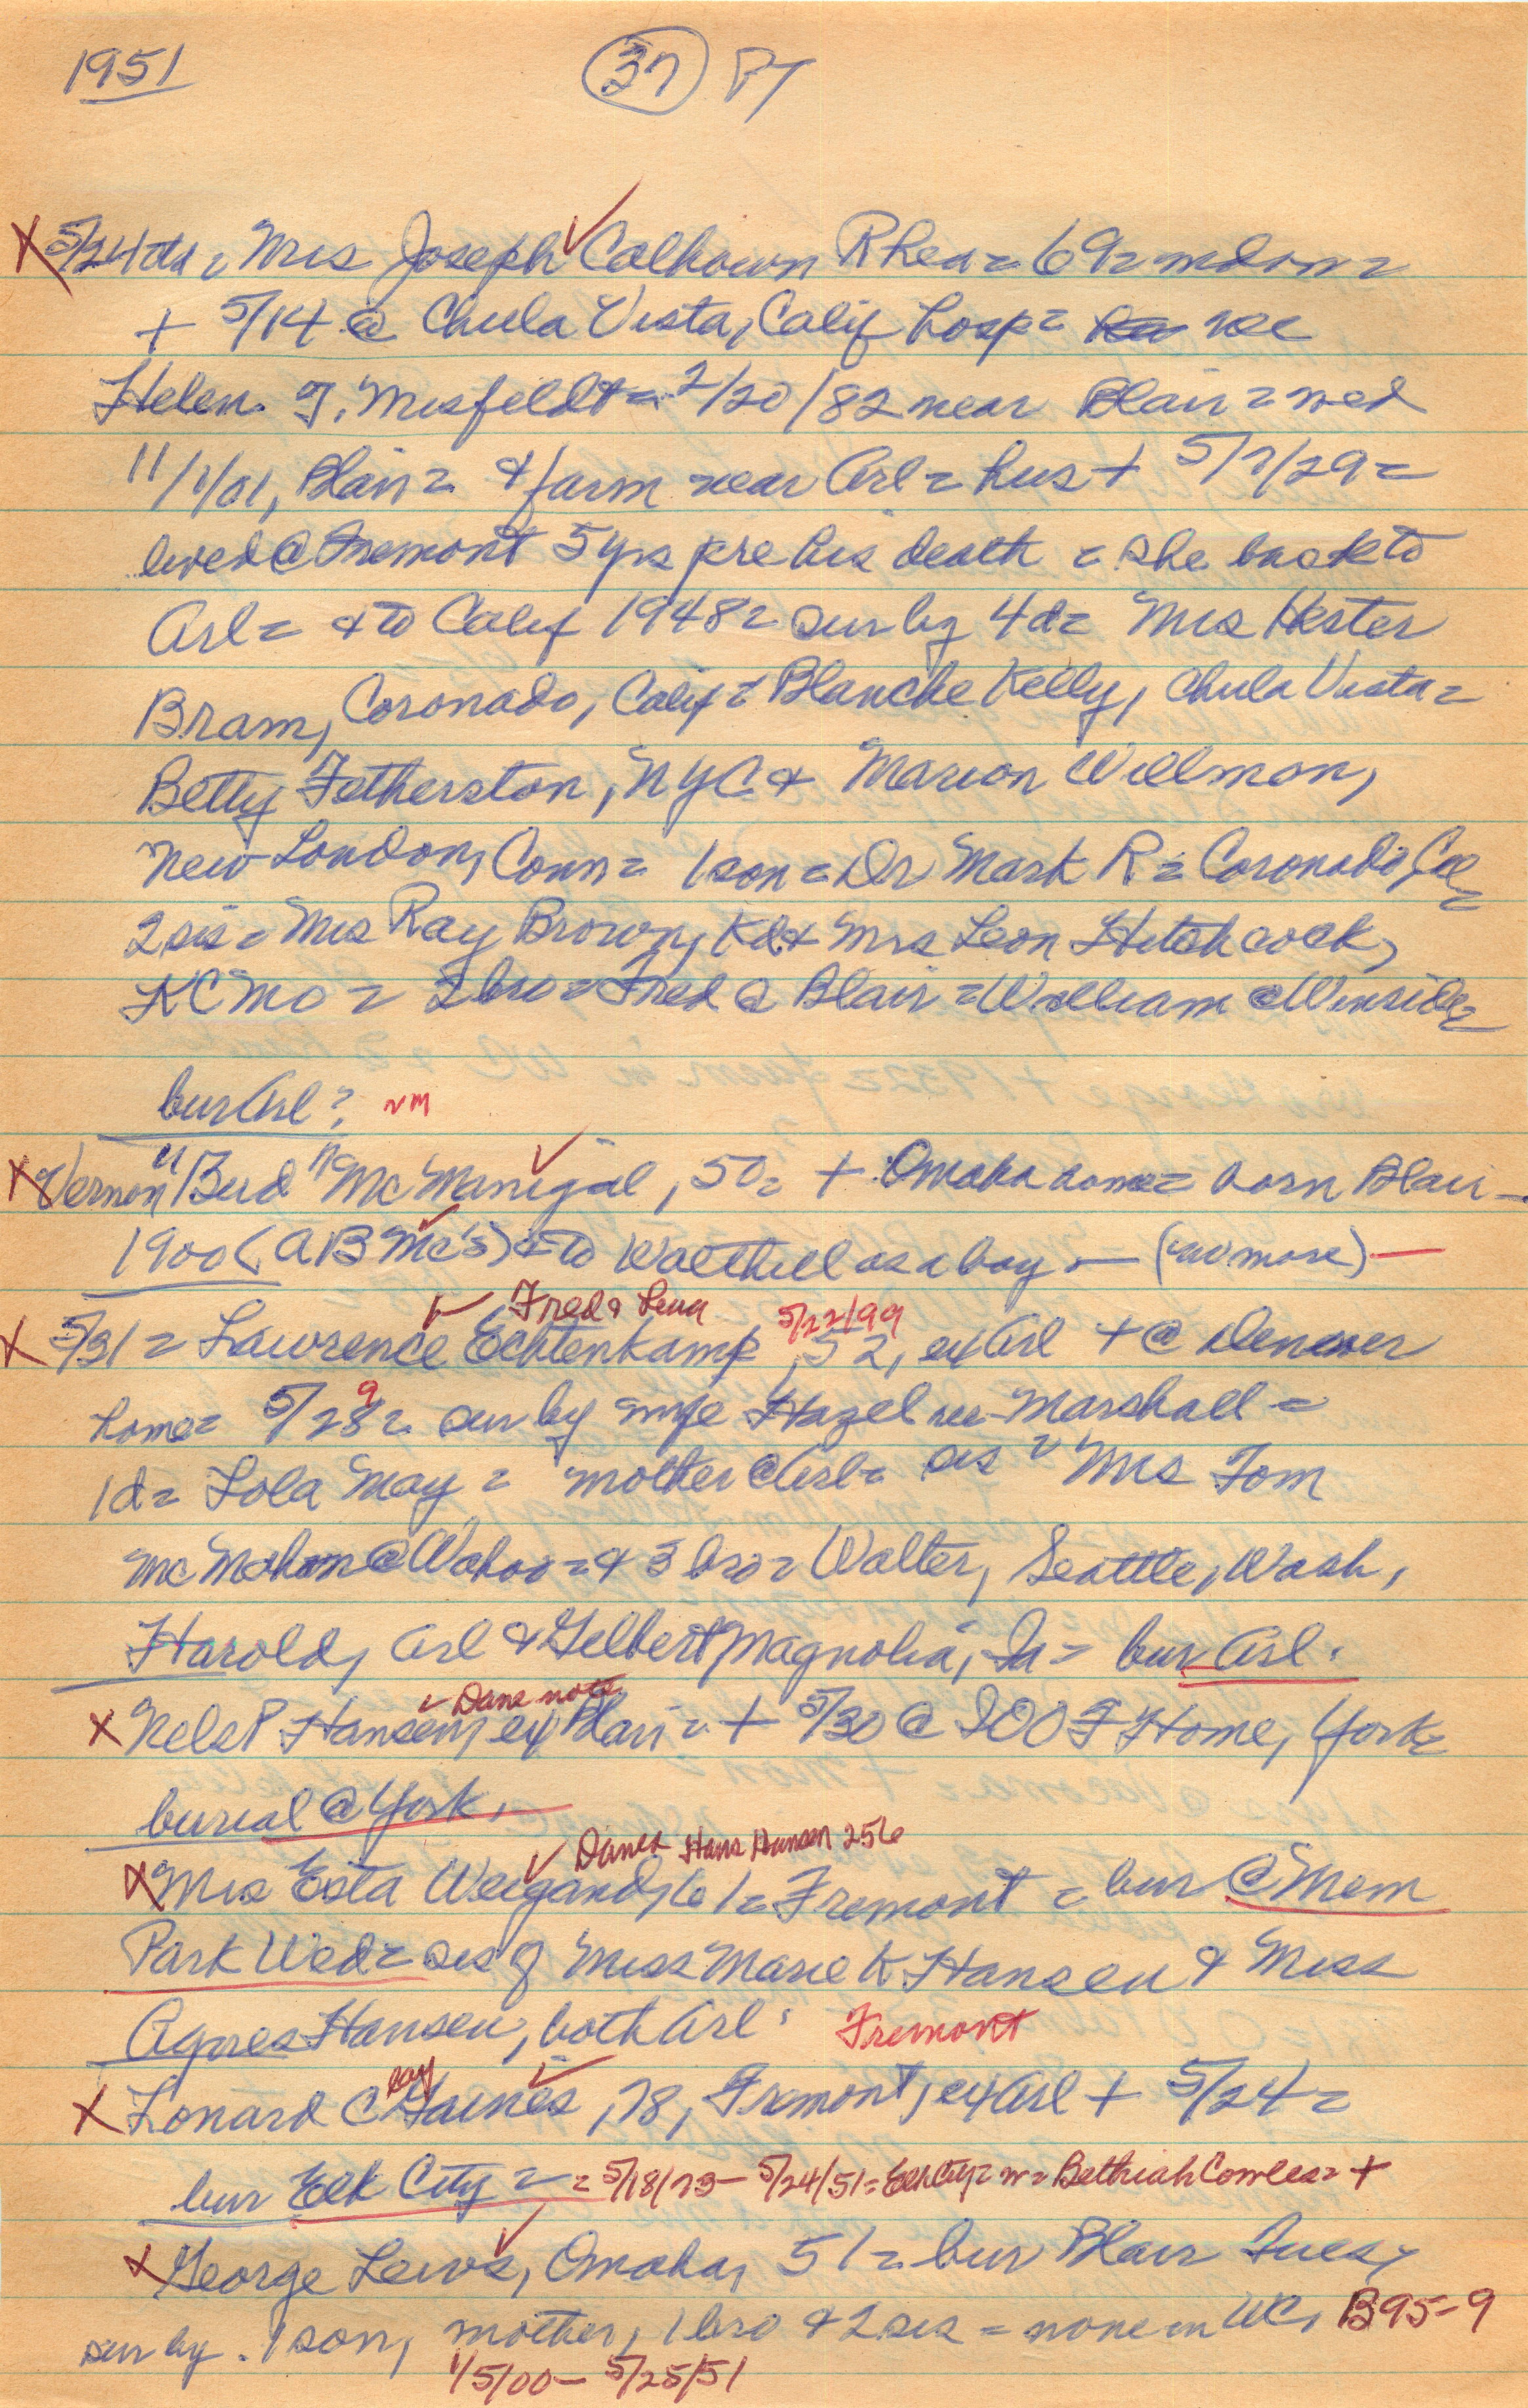 1951 (37) PT
X 5/24 ✓ = Mrs Joseph Calhoun Rhea = 69 =
+ 5/14 @ Chula Vista, Calif hosp = nee
Helen T. Misfeldt = 2/20/82 near Blair = wed
11/1/01, Blair = & farm near Arl = hus + 5/7/29 =
lived @ Fremont 5 yrs pre his death = she back to
Arl = & to Calif 1948 = sur by 4d = Mrs Hester
Bram, Coronado, Calif = Blanche Kelly, Chula Vista =
Betty Fetherston, NYC & Marion Willmon,
New London, Conn = 1 son = Dr Mark R = Coronado, Cal =
2 sis = Mrs Ray Brown, Kd & Mrs Leon Hitchcock,
KC Mo = 2 bro = Fred @ Blair = William @ Winside =
bur Arl? NM
X Vernon "Bud" McManigal, 50 = + Omaha home = born Blair —
1900 (AB Mc's) & to Walthill as a boy — (no more) —
✓ Fred & Lena 5/22/99
X 5/31 = Lawrence Echtenkamp, 52, ex Arl + @ Denver
home = 5/28 9 = sur by wife Hazel nee Marshall =
1d = Lola May = mother @ Arl = sis = Mrs Tom
McMahon @ Wahoo = & 3 bro = Walter, Seattle, Wash,
Harold, Arl & Gilbert, Magnolia, Ia = bur Arl.
✓ Dane note
X Nels P Hansen, ex Blair = + 5/30 @ IOOF Home, York =
burial @ York.
✓ Danes Hans Hansen 256
X Mrs Esta Weigand, 61 = Fremont = bur @ Mem
Park Wed = sis of Miss Marie K Hansen & Miss
Agnes Hansen, both Arl. Fremont
X Lonard C Gaines, 78, Fremont, ex Arl + 5/24 =
bur Elk City = = 5/18/73 — 5/24/51 = Elk City = w = Bethiah Cowles = +
X George Lewis, Omaha, 51 = bur Blair Tues,
sur by. 1 son, mother, 1 bro & 2 sis = none in WC, B95-9
1/5/00 — 5/25/51